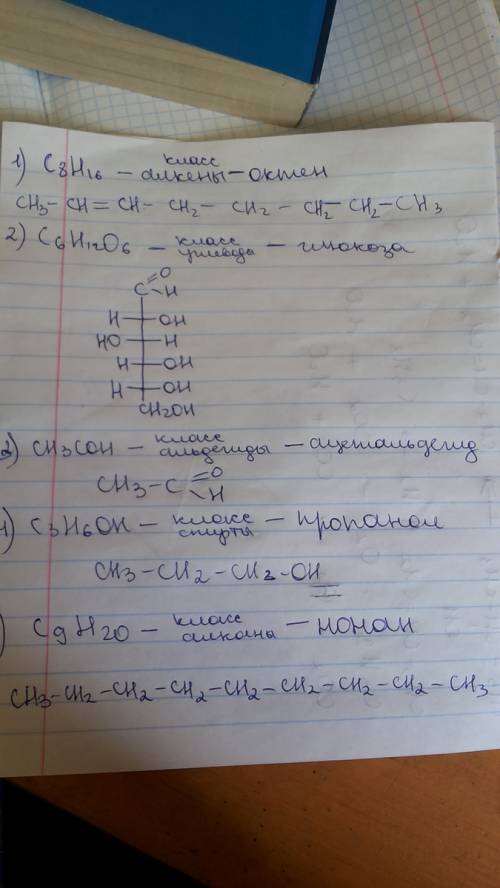 1) C8H16 – класс алкены – октен
CH3 – CH = CH – CH2 – CH2 – CH2 – CH2 – CH3
2) C6H12O6 – класс углевода – глюкоза
C =O – H
H OH
HO H
H OH
H OH
CH2OH
2) CH3COH – класс альдегиды – ацетальдегид
CH3 – C =O – H
1) C3H6OH – класс спирты – пропанол
CH3 – CH2 – CH2 – OH
) C9H20 – класс алканы – нонан
CH3 – CH2 – CH2 – CH2 – CH2 – CH2 – CH2 – CH2 – CH3